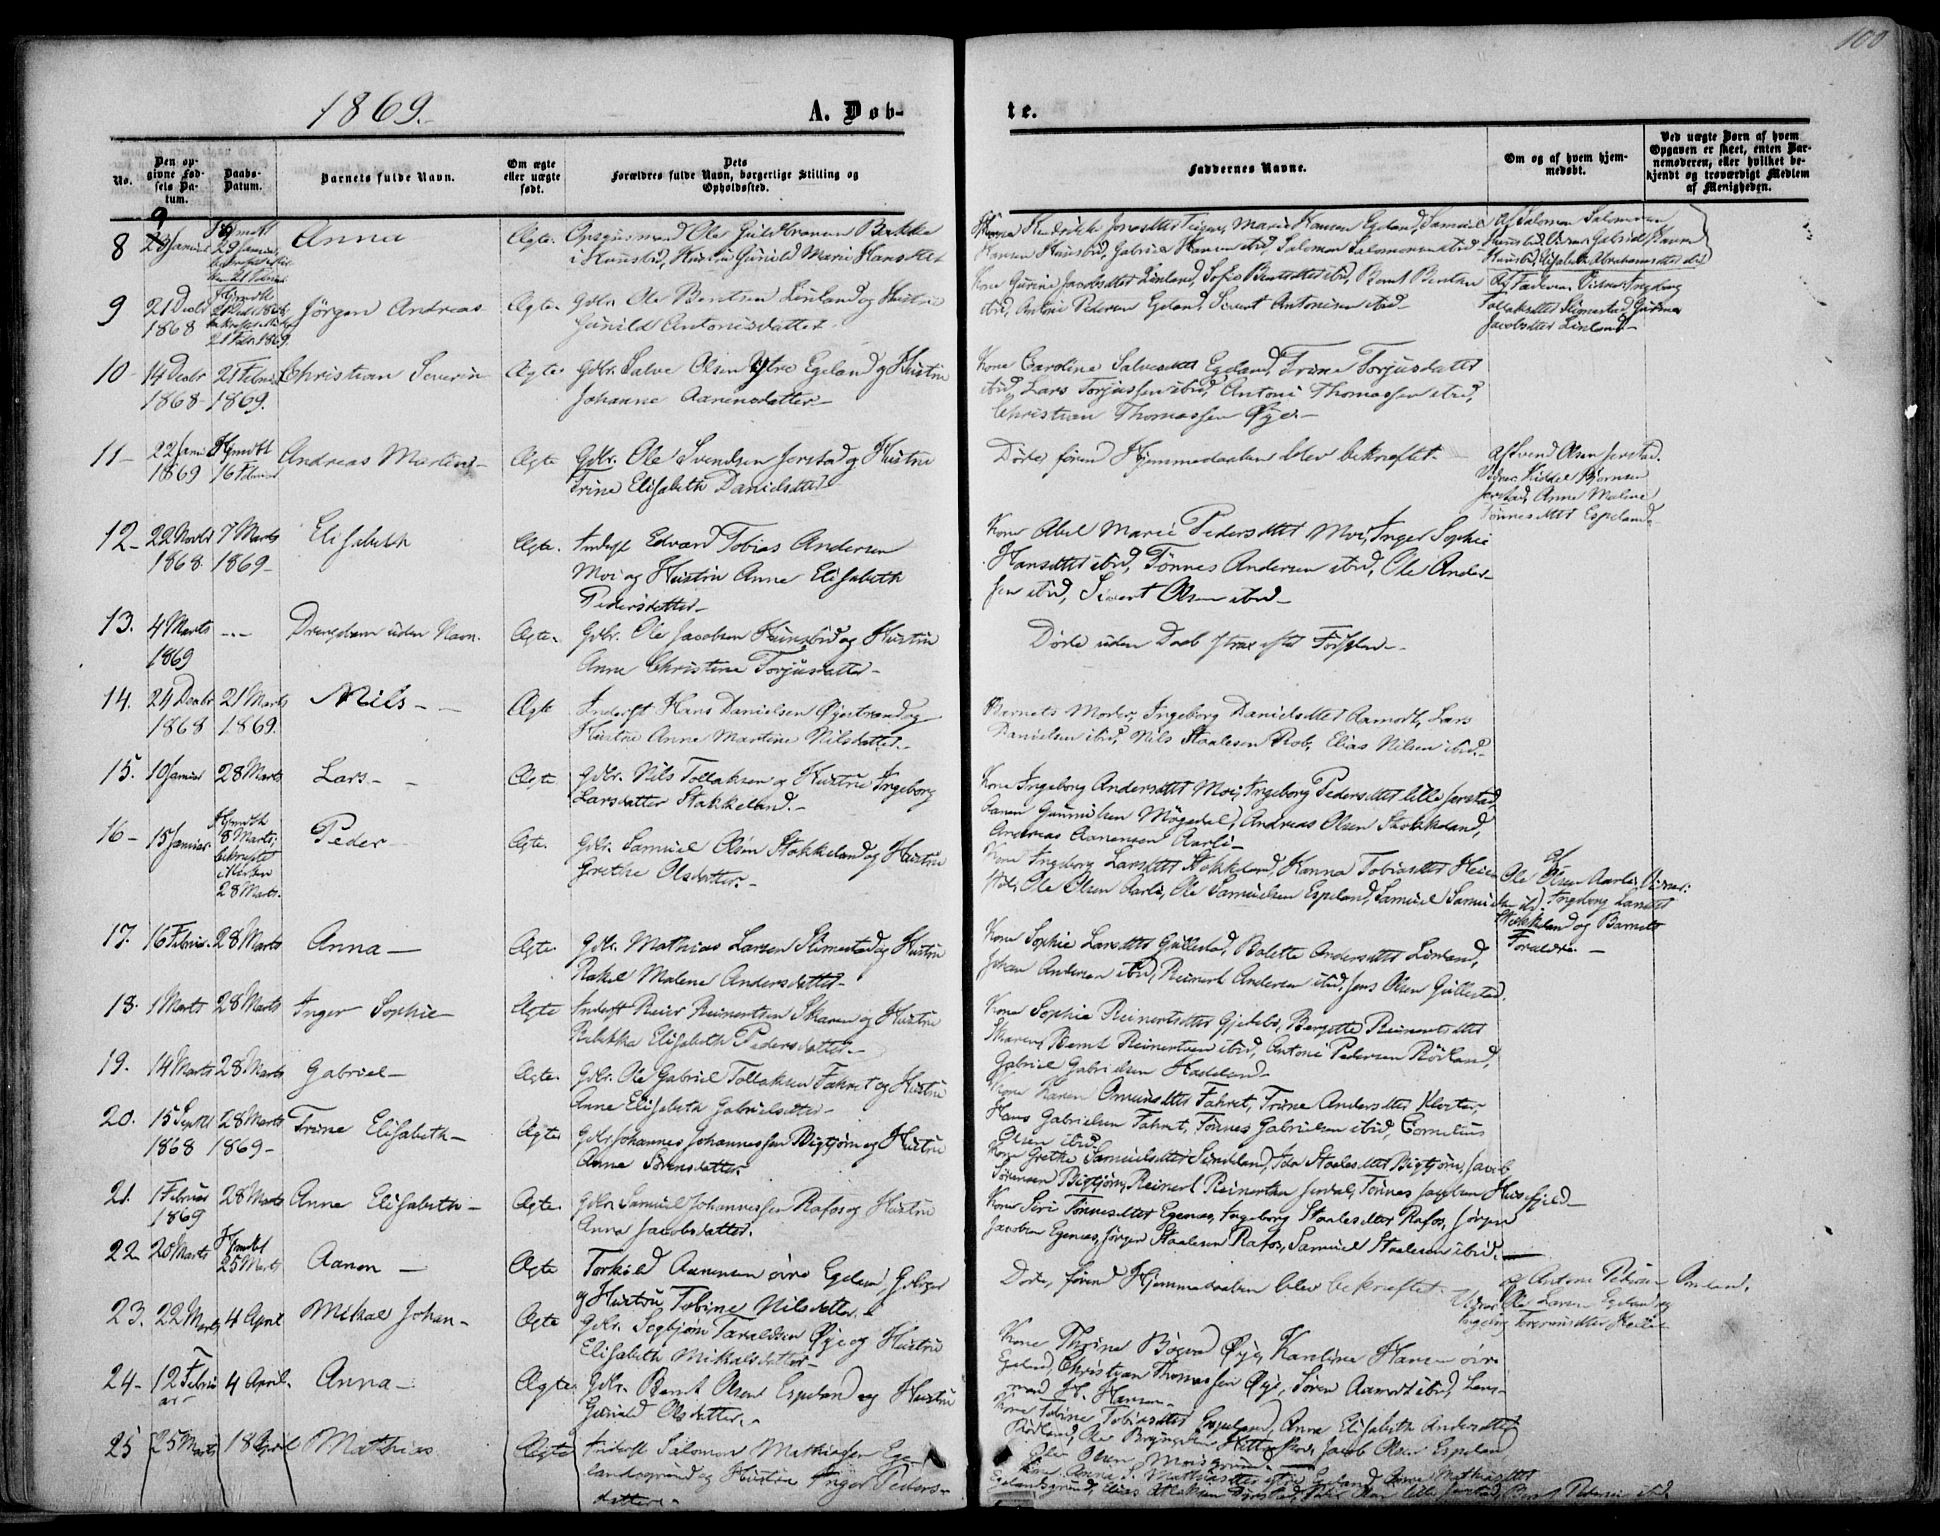 100
1869.
A. Døb-
te.
No.
Den op-
givne Fød-
sels Da-
tum.
Daabs-
Datum.
Barnets fulde Navn.
Om ægte
eller uægte
født.
Dets
Forældres fulde Navn, borgerlige Stilling og
Opholdssted.
Faddernes Navne.
Om og af hvem hjem-
medøbt.
Ved uægte Børn af hvem
Opgaven er skeet, enten Bar-
nemoderen, eller hvilket be-
kjendt og troværdigt Medlem
af Menigheden.
8
Anna
Ægte.
Ole Guldbransen Bakke
Hustru Gunild Marie Hansdtter
9
21 Decbr
1868
Jörgen Andreas
Ægte
Gdbr. Ole Bentsen Linland og Hustru
Gunild Antonisdatter
Kone Gurine Jacobsdtter Linland, Sofie Bentsdtter ibid, Bernt Bentsen
ibid, Antoni Pedersen Egeland, Sivert Antonisen ibid
10
14 Decbr
1868
21 Februar
1869.
Christian Severin
Ægte
Gdbr. Salve Olsen Ytre Egeland og Hustru
Johanne Aanensdatter
Kone Caroline Salvesdtter Egeland, Trine Torjusdatter
ibid, Lars Torjussen ibid, Antoni Thomassen ibid,
Christian Thomassen Øye
11
22 Januar
1869
Hjmdbt
16 Februar
Andreas Martin
Ægte
Gdbr. Ole Svendsen Jerstad og Hustru
Trine Elisabeth Danielsdtter
Døde, førend Hjemmedaaben blev bekræftet
Af Svend Olsen Jerstad.
Jerstad, Anne Malene
Tönnesdtter Espeland
12
22 Novbr
1868
7 Marts
1869
Elisabeth
Ægte.
Inderst Edvard Tobias Andersen
Moi og Hustru Anne Elisabeth
Pedersdatter
Kone Abel Marie Pedersdtter Moi, Inger Sophie
Hansdtter ibid, Tönnes Andersen ibid, Ole Ander-
sen ibid, Sivert Olsen ibid
13.
4 Marts
1869
Drengebarn uden Navn.
Ægte
Gdbr. Ole Jacobsen Kunsbid og Hustru
Anne Christine Torjusdatter
Døde uden Daab strax efter Fødselen
14.
24 Decbr
1868
21 Marts
1869.
Nils
Ægte
Inderst Hans Danielsen Øyestrand og
Hustru Anne Martine Nilsdatter
Barnets Moder, Ingeborg Danielsdtter Aamodt, Lars
Danielsen ibid, Nils Staalesen Rob, Elias Nilsen ibid.
15.
10 Januar
28 Marts
Lars
Ægte
Gdbr. Nils Tollaksen og Hustru Ingeborg
Larsdatter Stokkeland.
Kone Ingeborg Andersdtter Moi, Ingeborg Pedersdtter lille Jerstad,
Gunnulsen Mögedal, Andreas Olsen Stokkeland,
Andreas Aanensen Aarli
16
15 Januar
Hjmdbt
8 Marts,
bekræftet
i Kirken
28 Marts.
Peder
Ægte.
Gdbr. Samuel Olsen Stokkeland og Hustru
Grethe Olsdatter.
Kone Ingeborg Larsdtter Stokkeland, Hanna Tobiasdtter Heie
Ole Olsen Aarli, Ole Samuelsen Espeland, Samuel Samuelsen ibid.
af
Ole Olsen Aarli,
Ingeborg Larsdtter
Stokkeland og Barnets
Forældre.
17.
16 Februar.
28 Marts
Anna
Ægte
Gdbr. Mathias Larsen Slimestad og Hustru
Rakel Malene Andersdatter
Kone Sophie Larsdtter Gullestad, Bolette Andersdtter Linland,
Johan Andersen ibid, Reinert Andersen ibid, Jens Olsen Gullestad.
18.
1 Marts
28 Marts
Inger Sophie
Ægte
Inderst Reier Reinertsen Skaren og Hustru
Rebekka Elisabeth Pedersdatter
Kone Sophie Reinertsdtter Gjeddebo, Bergitte Reinertsdtter
Skaren, Bernt Reinertsen ibid, Antoni Pedersen Rörland,
Gabriel Gabrielsen Hadeland
19.
14 Marts
28 Marts
Gabriel
Ægte.
Gdbr. Ole Gabriel Tollaksen Fahret og Hustru
Anne Elisabeth Gabrielsdtter
Kone Karen Omundsdtter Fahret, Trine Andersdtter Kloster,
Hans Gabrielsen Fahret, Tönnes Gabrielsen ibid, Cornelius
Olsen ibid.
20.
15 Septbr
1868
28 Marts
1869
Trine Elisabeth
Ægte
Gdbr Johannes Johannessen Bigtjörn og Hustru
Anne Sörensdatter.
Kone Grethe Samuelsdtter Sindeland, Ida Staalesdtter Bigtjörn, Jacob
Sörensen Bigtjörn, Reinert Reinertsen Jerdal, Tönnes Jacobsen Husefjeld
21.
1 Februar
1869
28 Marts
Anne Elisabeth
Ægte.
Gdbr. Samuel Johannessen Rafos og Hustru
Anna Jacobsdatter.
Kone Siri Tönnesdtter Egenes, Ingeborg Staalesdtter Rafos, Jörgen
Jacobsen Egenes, Jörgen Staalesen Rafos, Samuel Staalesen ibid.
22
20 Marts
Hjmdbt
25 Marts
Aanon
Ægte
Torkild Aanensen øvre Egeland, Gdbr
og Hustru Tobine Nilsdatter
Døde, førend Hjemmedaaben blev bekræftet.
af Antoni Pedersen Omland.
Ole Larsen Egeland og
23.
22 Marts
4 April
Mikal Johan
Ægte
Gdbr. Segbjörn Taraldsen Øye og Hustru
Elisabeth Mikalsdatter
Kone Thrine Øye, Karoline Hansen övre
Egeland, Christian Thomassen Øye, Sören Aamodt ibid, Lens-
mand H. Hansen
24
12 Febru
ar
4 April.
Anna
Ægte
Gdbr. Bernt Olsen Espeland og Hustru
Gunild Olsdatter.
Kone Tobine Tobiasdtter Espeland, Anne Elisabeth Andersdtter
Rörland, Jacob Olsen Espeland
25
25 Marts
18 April
Mathias
Ægte
Inderst Salomon Mathiassen Ege-
landsgrund og Hustru Inger Peders-
datter